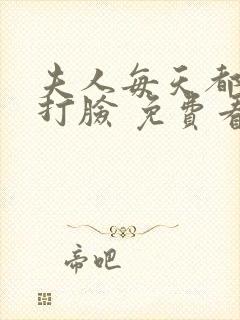 夫人每天都
打臉 免費看
帝吧